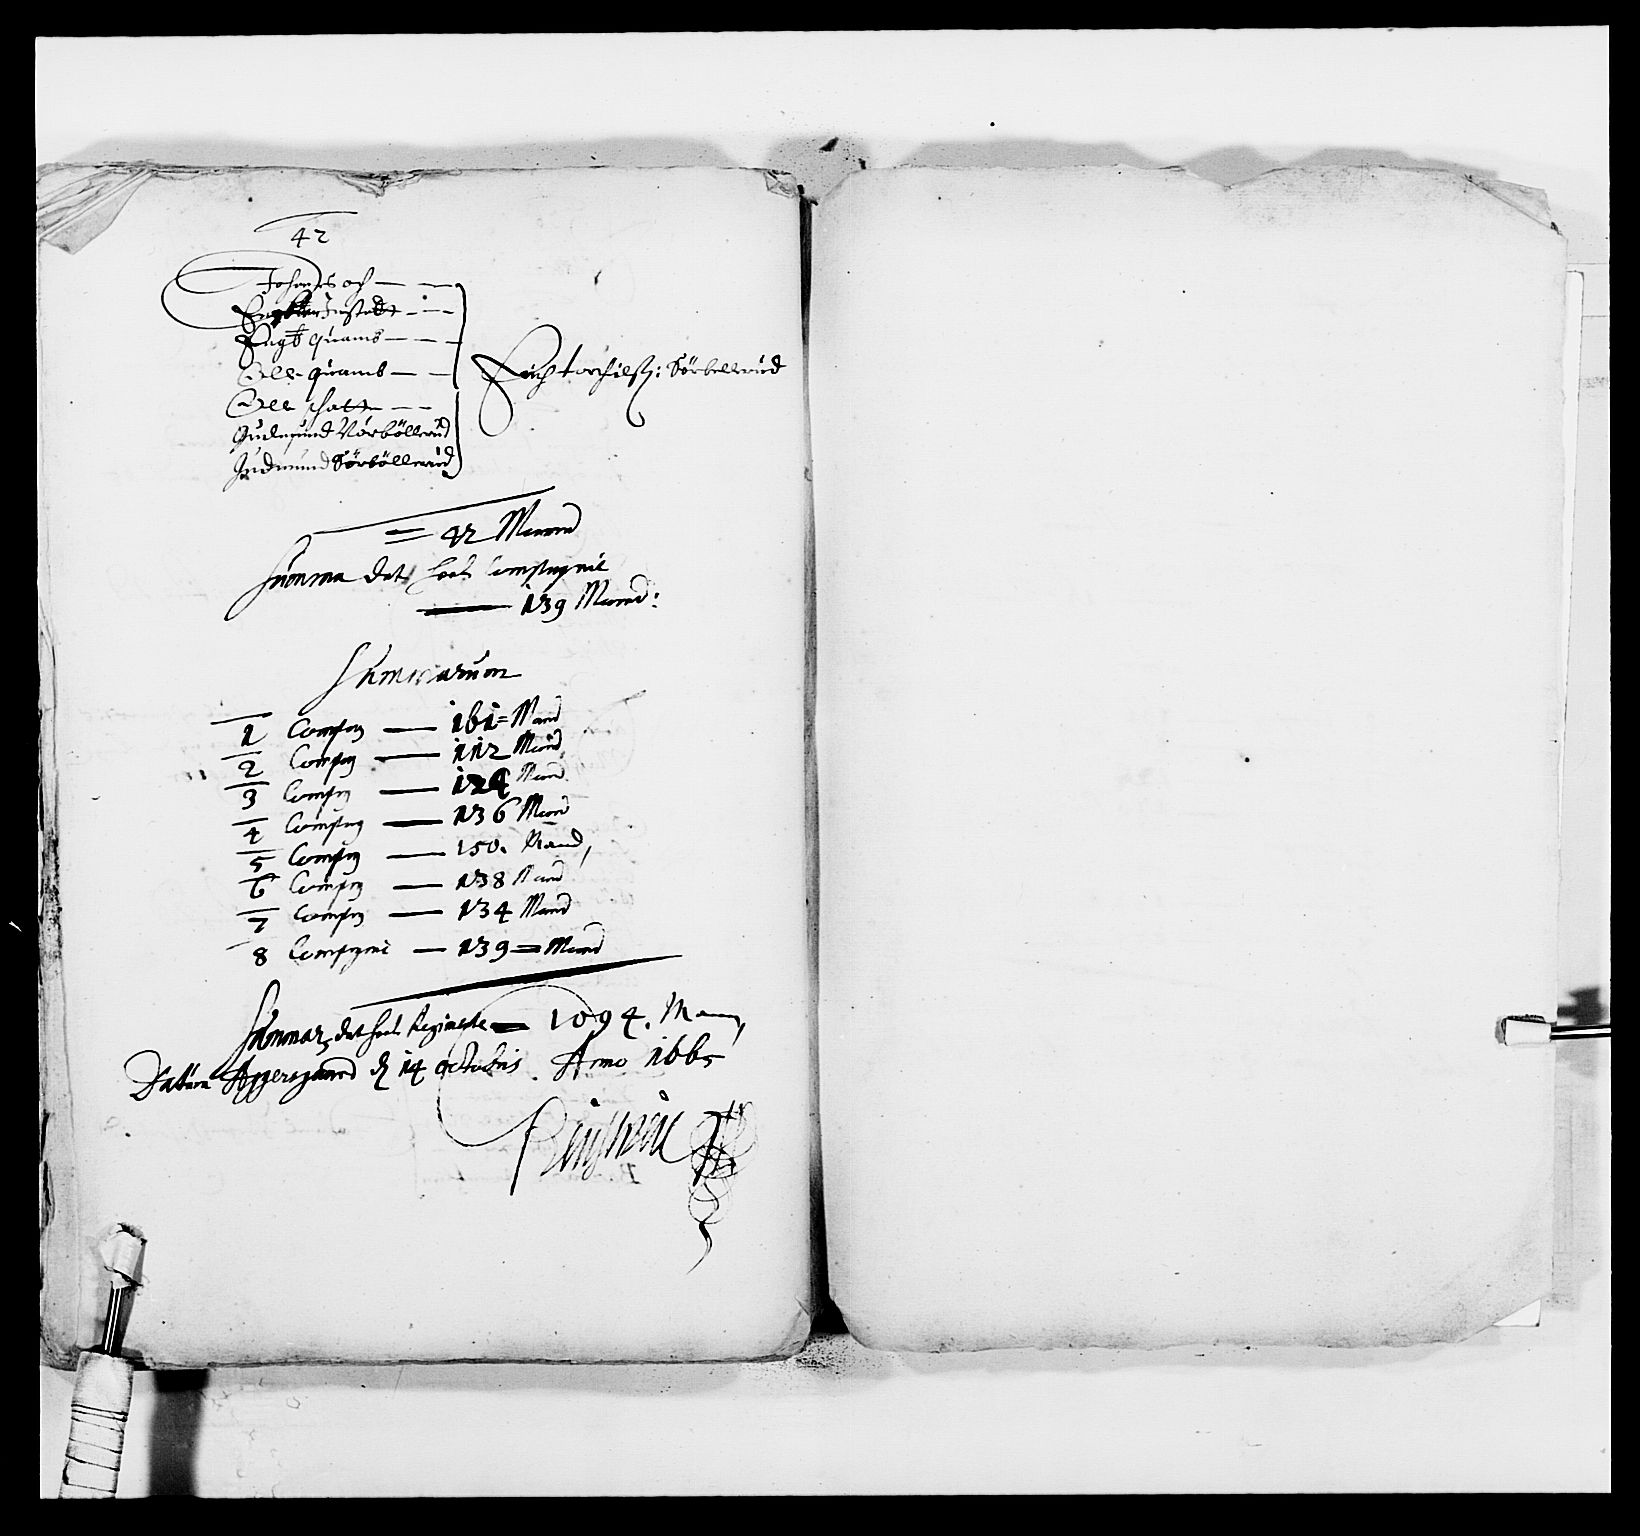 42
Johanes och — —
Engebret Jnstad — —
Engbt quams — — —
Olle quams — —
Olle schatt — —
Gudmund Nörböllerud
Gudmund Sörböllerud
Erich torchilsß: Sörbellerud
= 42 Mannd
Summa det heele Compagnie
— 139 Mannd:
Summarum
1 Compag — 161 = Mand
2 Compag — 112 Mand
3 Compag — 124 Mand
4 Compag — 136 Mand
5 Compag — 150. Mand,
6 Compag — 138 Mand
7 Compag — 134 Mand
8 Compagnie — 139 = Mand
Summar, det heele Regimente = 1094. Man,
Datum Aggersgaard d 14 octobris. Anno 1665